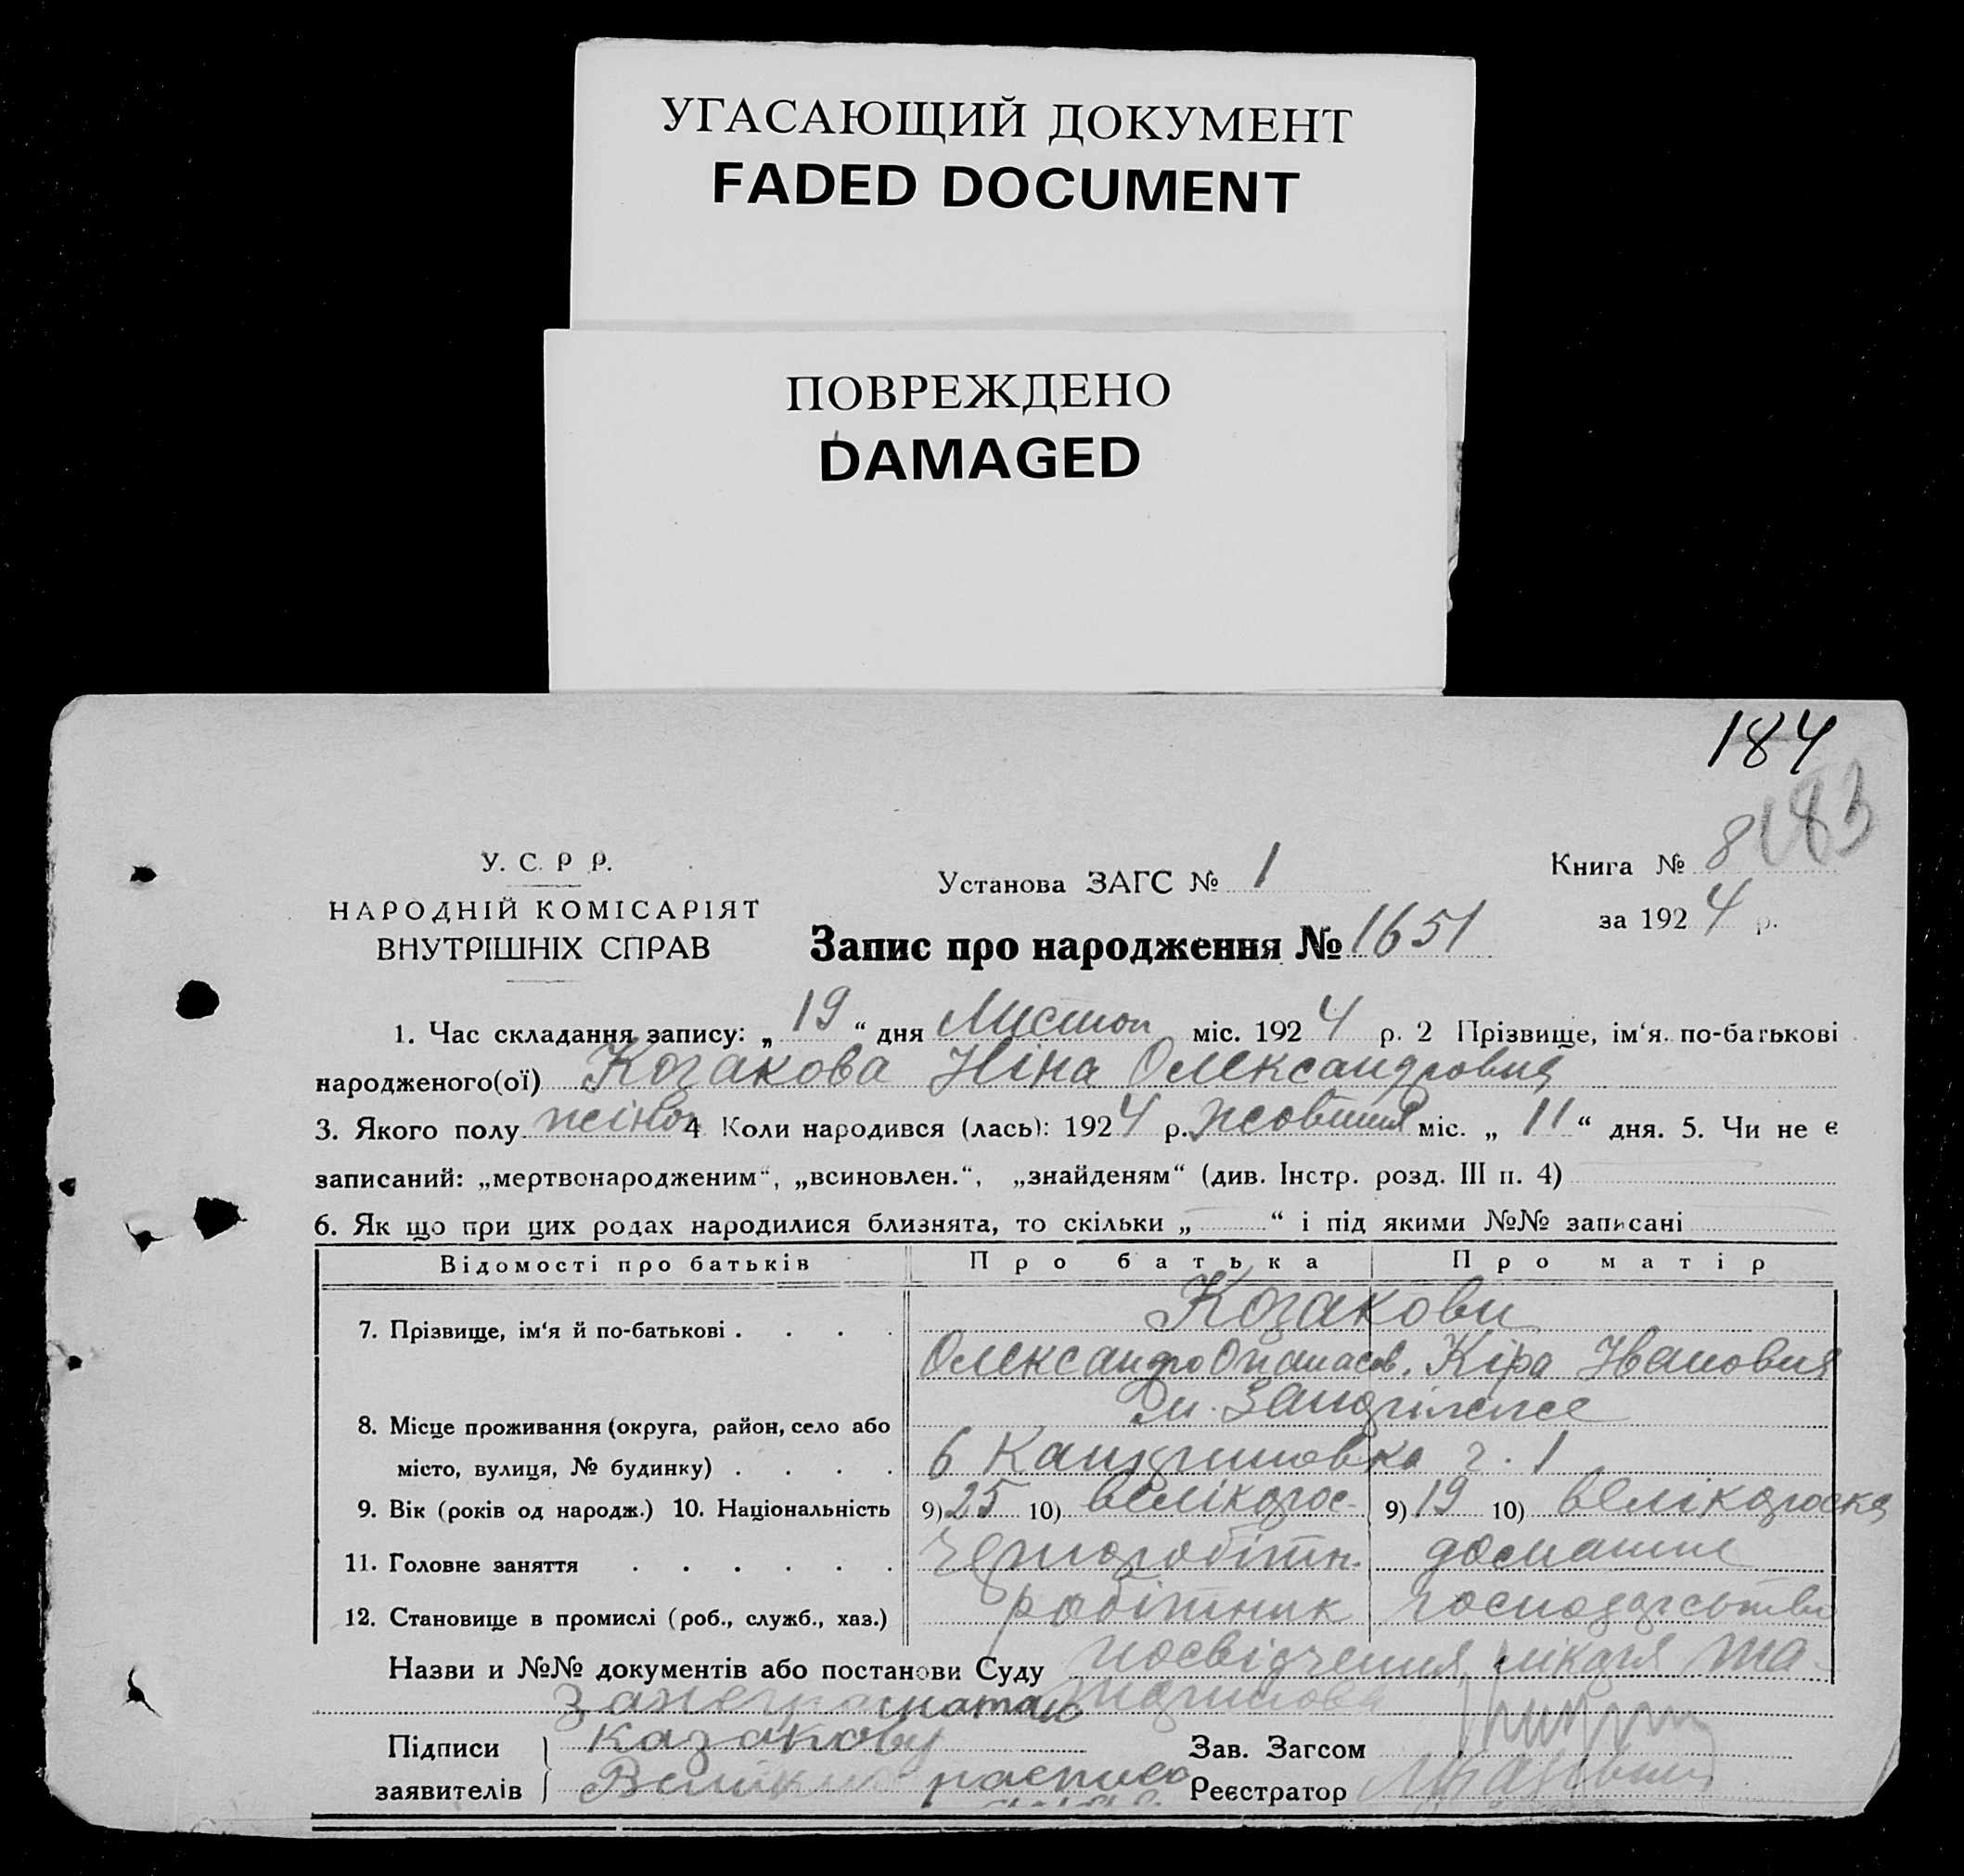 УГАСАЮЩИЙ ДОКУМЕНТ
FADED DOCUMENT
ПОВРЕЖДЕНО
DAMAGED
184
183
У. С. Р Р.
НАРОДНІЙ КОМІСАРІЯТ
ВНУТРІШНІХ СПРАВ
Установа ЗАГС № 1
Книга № 8
за 1924 р.
Запис про народження № 1651
1. Час складання запису: „ 19 “ дня Листоп міс. 1924 р. 2 Прізвище, ім‘я. по-батькові
народженого(ої) Козакова Ніна Олександровна
3. Якого полу жіноч 4 Коли народився (лась): 1924 р. жовтня міс. „ 11 “ дня. 5. Чи не є
записаний: „мертвонародженим“, „всиновлен.“, „знайденям“ (див. Інстр. розд. III п. 4)
6. Як що при цих родах народилися близнята, то скільки „ “ і під якими №№ записані
Відомості про батьків Про батька Про матір
7. Прізвище, ім‘я й по-батькові . . . . Козакови
Олександро Опанасов. Кіра Івановна
8. Місце проживання (округа, район, село або
місто, вулиця, № будинку) . . . . 6 ч. 1
9. Вік (років од народж.) 10. Національність 9) 25 10) велікорос- 9) 19 10) велікороска
11. Головне заняття . . . . . . Чорноробітн. домашнє
12. Становище в промислі (роб., служб., хаз.) робітник господарство
Назви и №№ документів або постанови Суду посвідчення лікаря та
За неграмотаю
Підписи заявителів
казакову
роспис
Зав. Загсом
Реєстратор